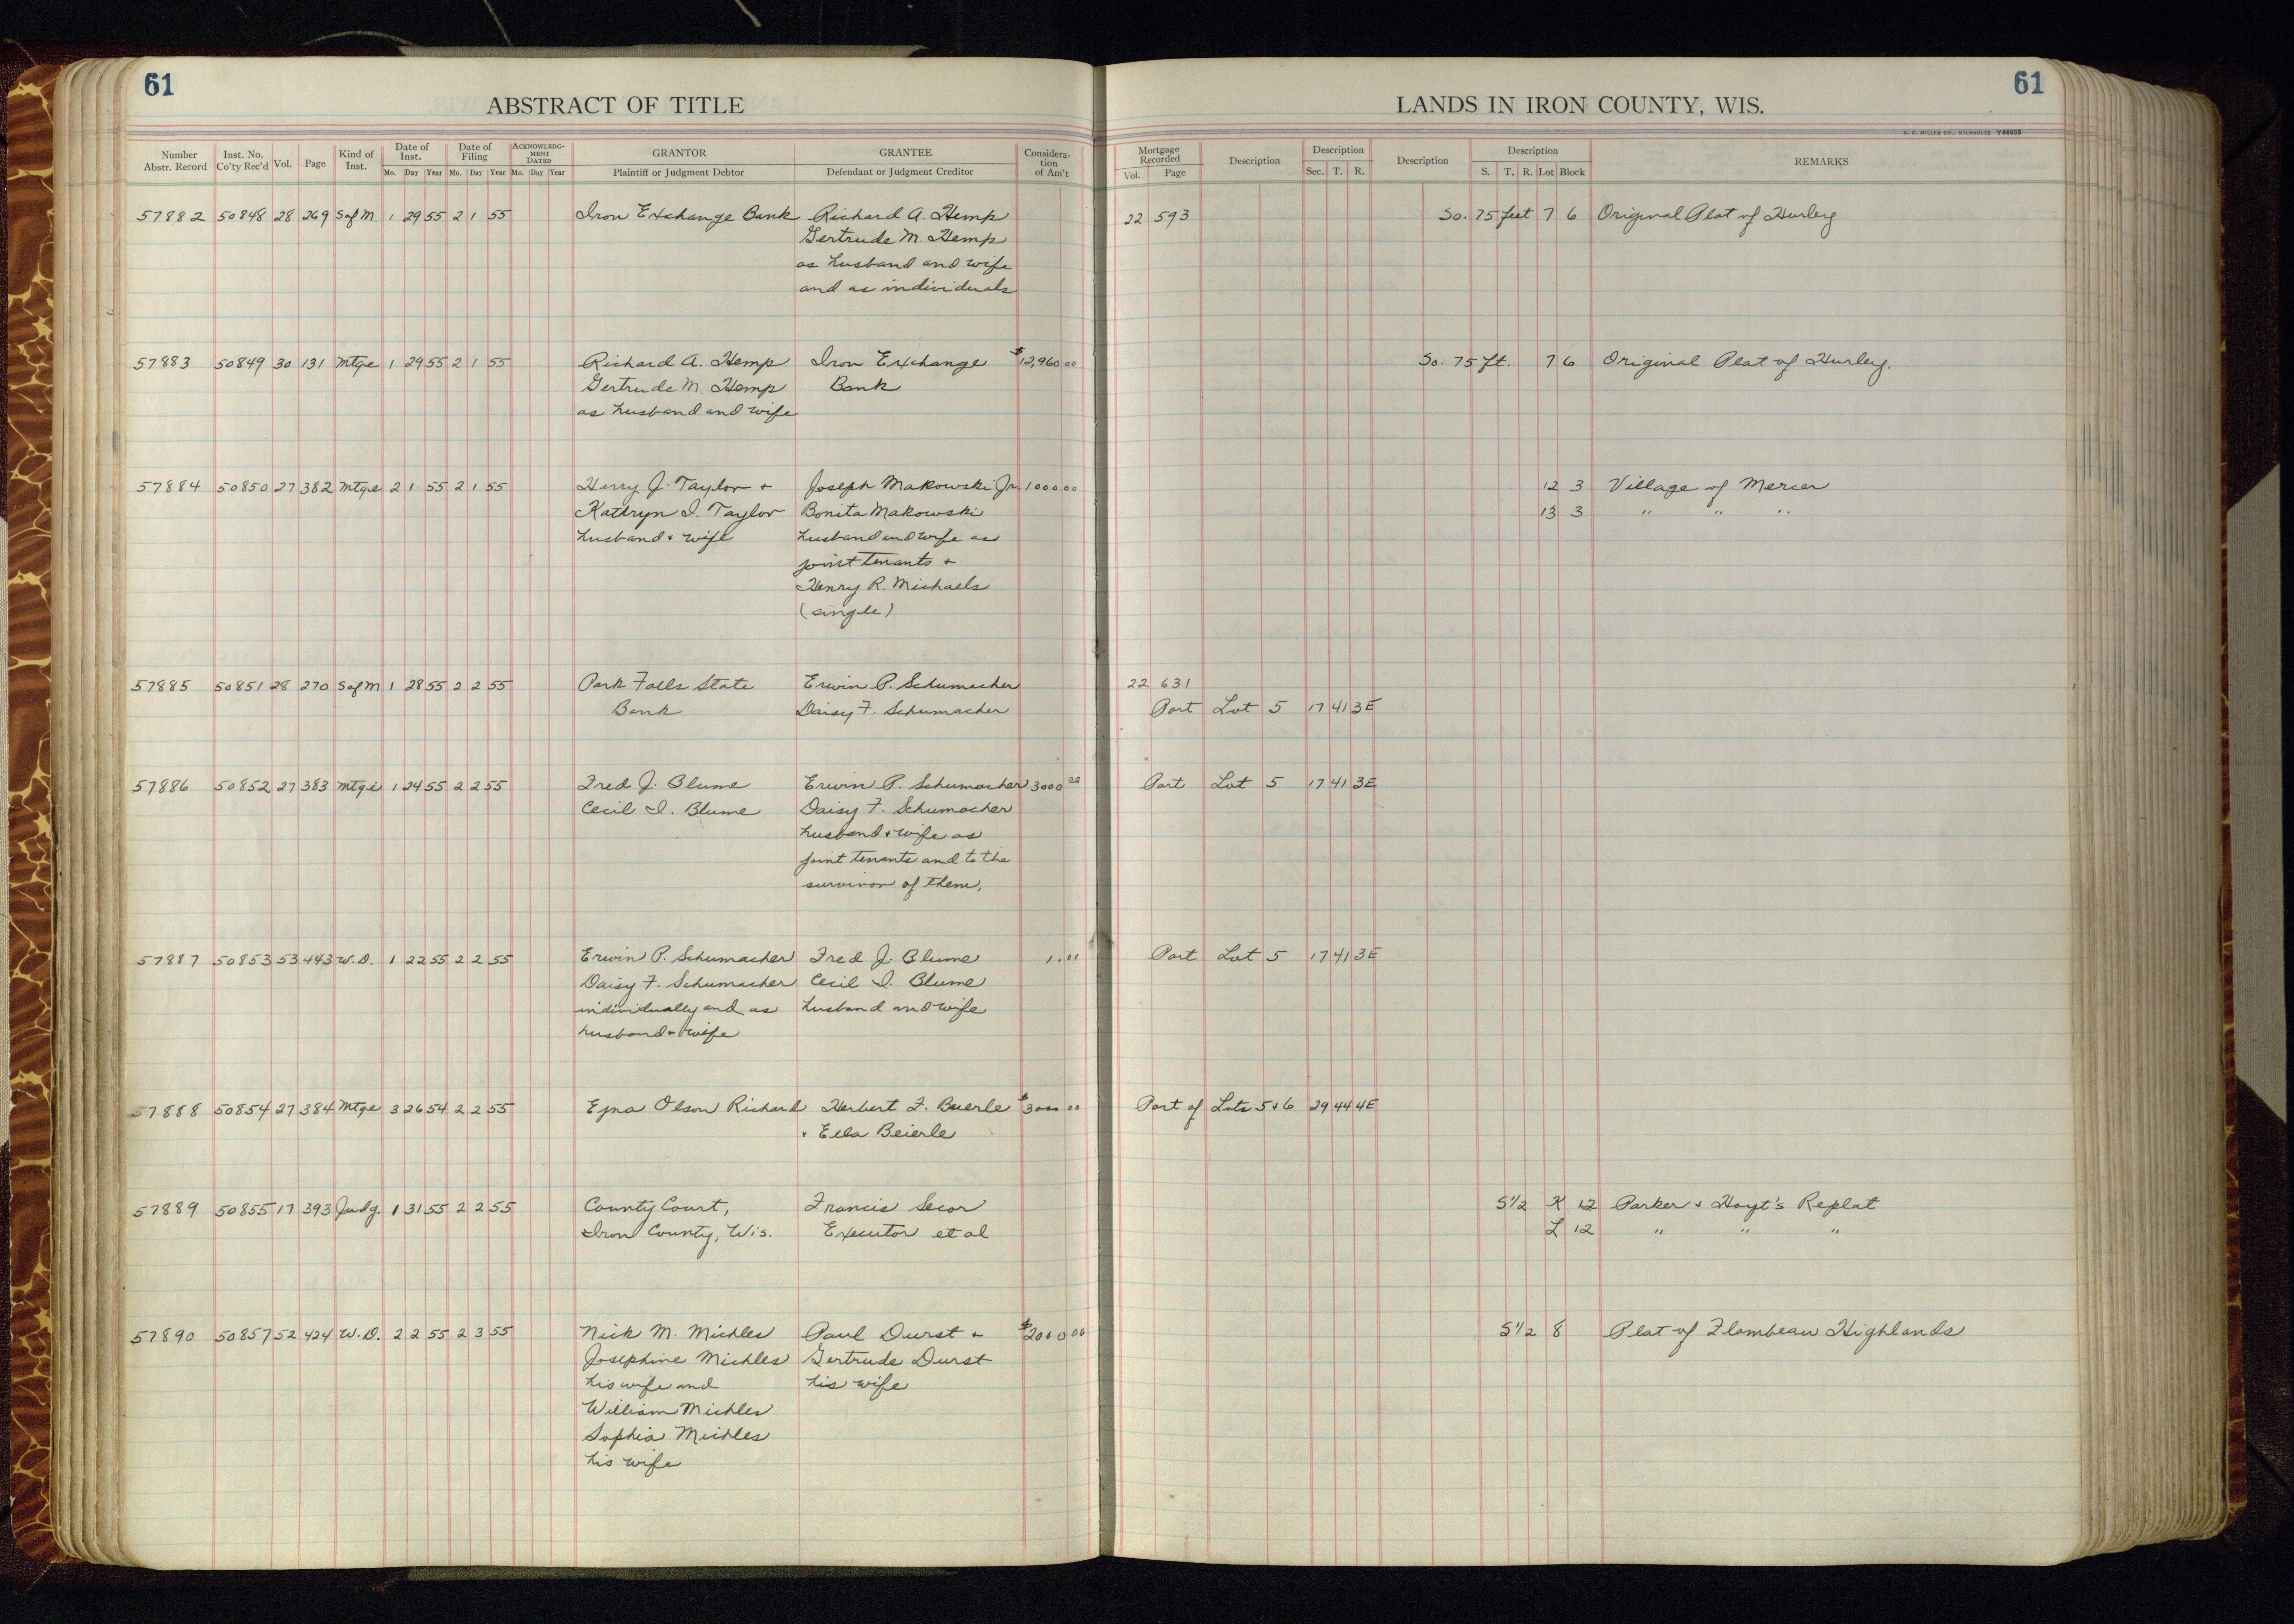 61
61
ABSTRACT OF TITLE
LANDS IN IRON COUNTY, WIS.
Number Abstr. Record
Inst. No. Co'ty Rec'd
Vol.
Page
Kind of Inst.
Date of Inst.
Mo. Day Year
Date of Filing
Mo. Day Year
ACKNOWLEDGMENT DATED
Mo. Day Year
GRANTOR
Plaintiff or Judgment Debtor
GRANTEE
Defendant or Judgment Creditor
Consideration of Am't
Mortgage Recorded
Vol. Page
Description
Description
Sec. T. R.
Description
Description
S. T. R. Lot Block
REMARKS
57882 50848 28 269 S of M. 1 29 55 2 1 55 Iron Exchange Bank Richard A. Hemp 22 593 So. 75 feet 7 6 Original Plat of Hurley
Gertrude M. Hemp
as husband and wife
and as individuals
57883 50849 30 131 Mtge 1 29 55 2 1 55 Richard A. Hemp Iron Exchange $12,960 00 So. 75 ft. 7 6 Original Plat of Hurley.
Gertrude M. Hemp Bank
as husband and wife
57884 50850 27 382 Mtge 2 1 55 2 1 55 Harry J. Taylor + Joseph Makowski Jr. 1000 00 12 3 Village of Mercer
Kathryn I. Taylor Bonita Makowski 13 3 " " "
husband + wife husband and wife as
joint tenants +
Henry R. Michaels
(single)
57885 50851 28 270 S of M 1 28 55 2 2 55 Park Falls State Erwin P. Schumacher 22 631
Bank Daisy F. Schumacher Part Lot 5 17 41 3E
57886 50852 27 383 Mtge 1 24 55 2 2 55 Fred J. Blume Erwin P. Schumacher 3000 00 Part Lot 5 17 41 3E
Cecil I. Blume Daisy F. Schumacher
husband + wife as
joint tenants and to the
survivor of them,
57887 50853 53 443 W.D. 1 22 55 2 2 55 Erwin P. Schumacher Fred J. Blume 1.00 Part Lot 5 17 41 3E
Daisy F. Schumacher Cecil I. Blume
individually and as husband and wife
husband + wife
57888 50854 27 384 Mtge 3 26 54 2 2 55 Olson Richard Herbert F. Buerle $3000 00 Part of Lots 5 + 6 29 44 4E
+ Ella Beierle
57889 50855 17 393 Judg. 1 31 55 2 2 55 County Court, Francis Secor S 1/2 K 12 Parker + Hoyt's Replat
Iron County, Wis. Executor et al L 12 " " "
57890 50857 52 424 W.D. 2 2 55 2 3 55 Nick M. Michles Paul Durst + $2000 00 S 1/2 8 Plat of Flambeau Highlands
Josephine Michles Gertrude Durst
his wife and his wife
William Michles
Sophia Michles
his wife